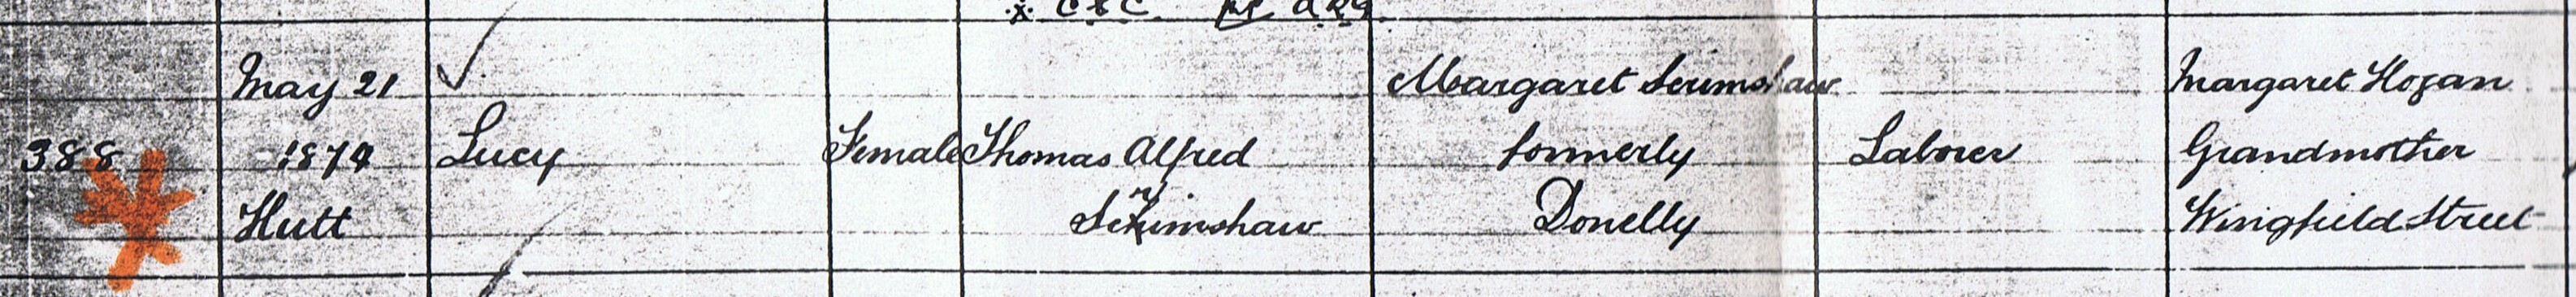 388
May 21
1874
Hutt
Lucy
Female
Thomas Alfred
Scrimshaw
Margaret Scrimshaw
formerly
Donelly
Laborer
Margaret Hogan
Grandmother
Wingfield Street